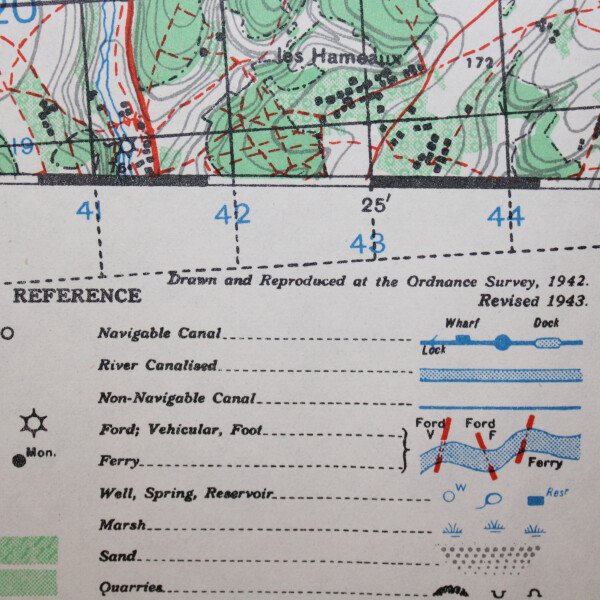 20
les Hameaux
172
19
41
42
25′
43
44
Drawn and Reproduced at the Ordnance Survey, 1942.
Revised 1943.
REFERENCE
Navigable Canal
Wharf
Dock
Lock
River Canalised
Non-Navigable Canal
Ford; Vehicular, Foot
Ford
V
Ford
F
Mon.
Ferry
Ferry
Well, Spring, Reservoir
W
Resr
Marsh
Sand
Quarries